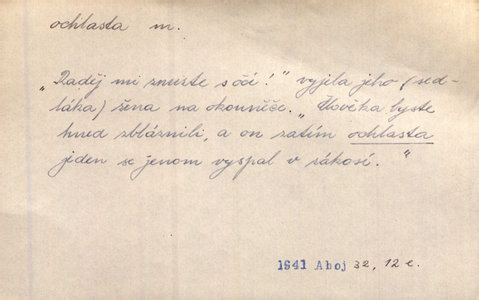 ochlasta m.
„Raděj mi zmizte s očí!" vyjela jeho (sed-
láka) žena na okouněče. „Člověka byste
hned zbláznili, a on zatím ochlasta
jeden se jenom vyspal v rákosí."
1941 Ahoj 32, 12 c.